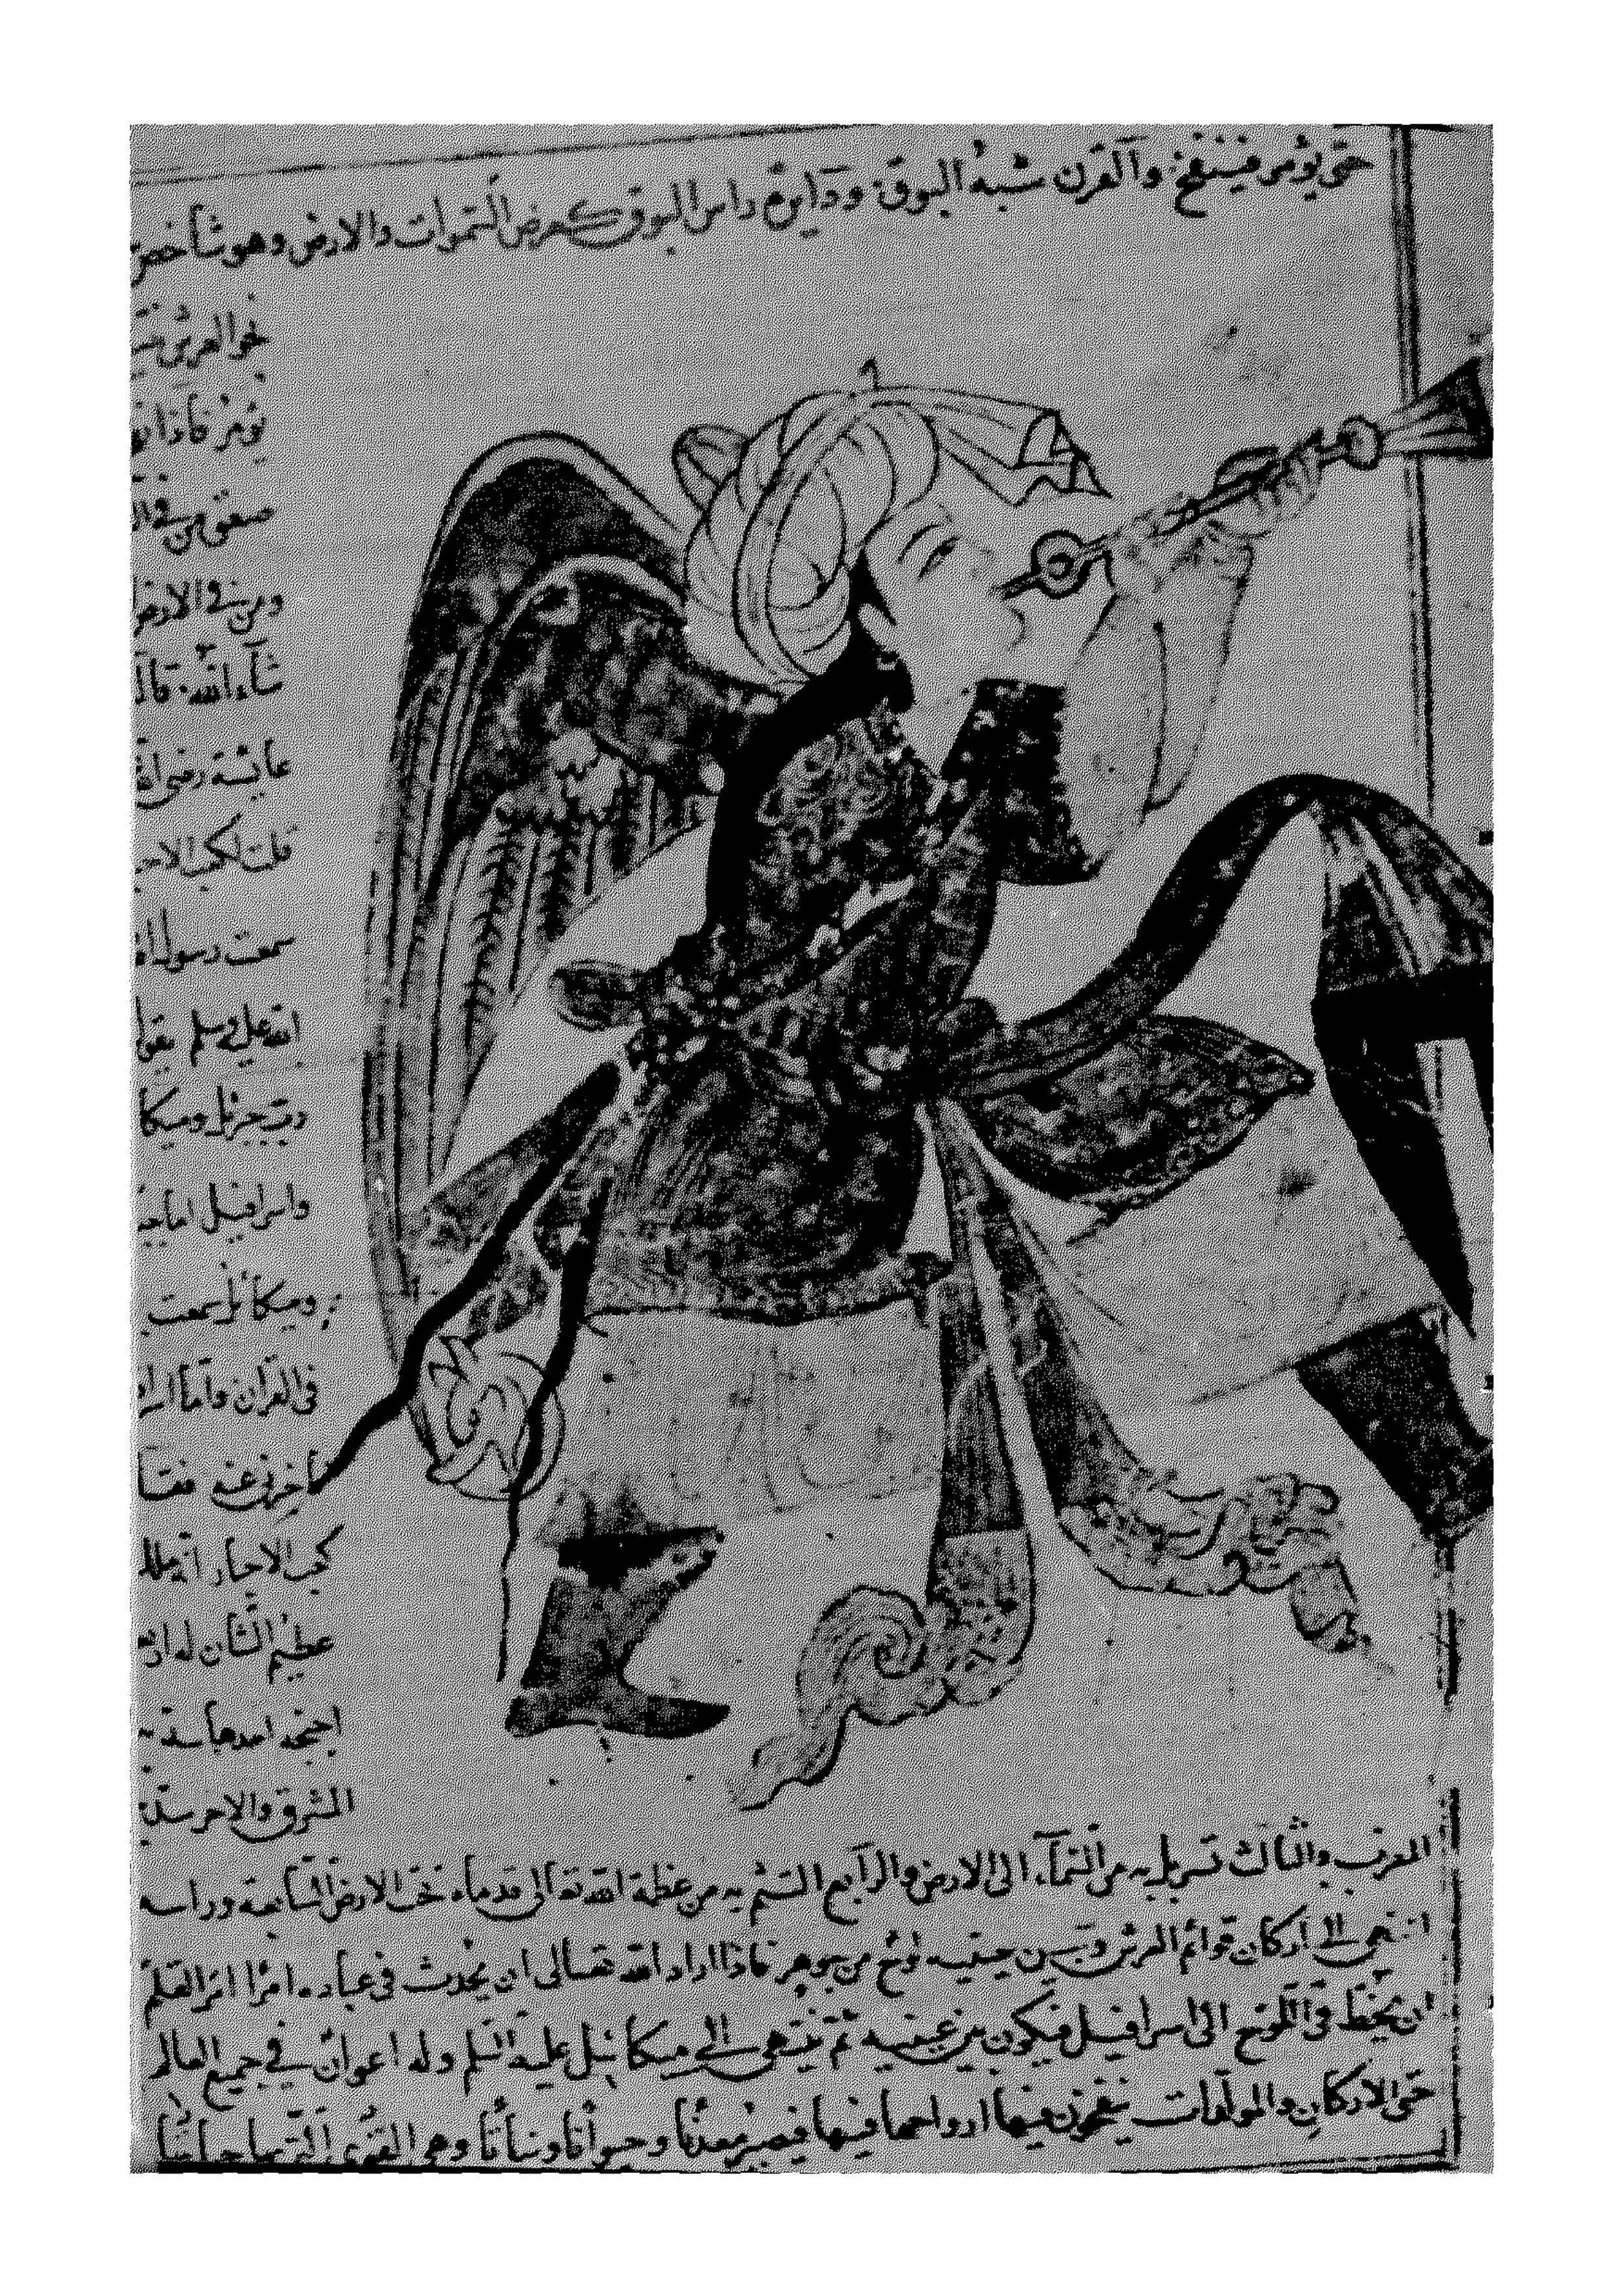 حتى يؤمر فينفخ والقرن شبه البوق ودايرة راس البوق كعرض السموات والارض وهو شاخص
نحو العرش
يؤمر فاذا
صعق من في
ومن في الارض
شاء الله قال
عايشة رضى
قلت لكعب الاحبـ
سمعت رسول
الله عليه وسلم يقول
رب جبرئل وميكا
واسرافيل اما
وميكائيل سمعت
فى القران واما
فاخبرنى عنه فقا
كعب الاحبار ان
عظيم الشأن له
اجنحة احدها سد به
المشرق والاخر سد به
المغرب والثالث تسربل به من السماء الى الارض والرابع التثم به من عظمة الله تعالى قدماه تحت الارض السابعة وراسه
انتهى الى اركان قوائم العرش وبين عينيه لوح من جوهر فاذا اراد الله تعالى ان يحدث فى عباده امرا امر القلم
ان يخط فى اللوح الى اسرافيل فيكون بين عينيه ثم ينتهى الى ميكائيل عليه السلم وله اعوان في جميع العالم
حتى الاركان والمولدات ينفخون فيها ارواحها فيها فيصير معدنا وحيوانا ونباتا وهو القوى التى